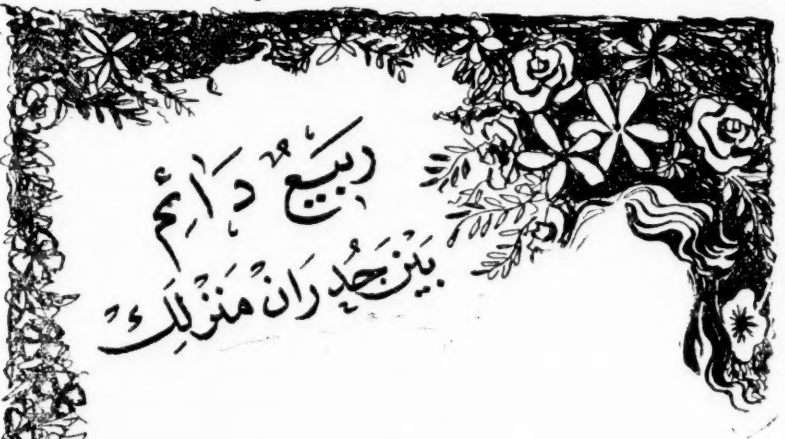 رَبيعٌ دَائِم
بَيْنَ جُدرَانْ مَنْزِلِكِ